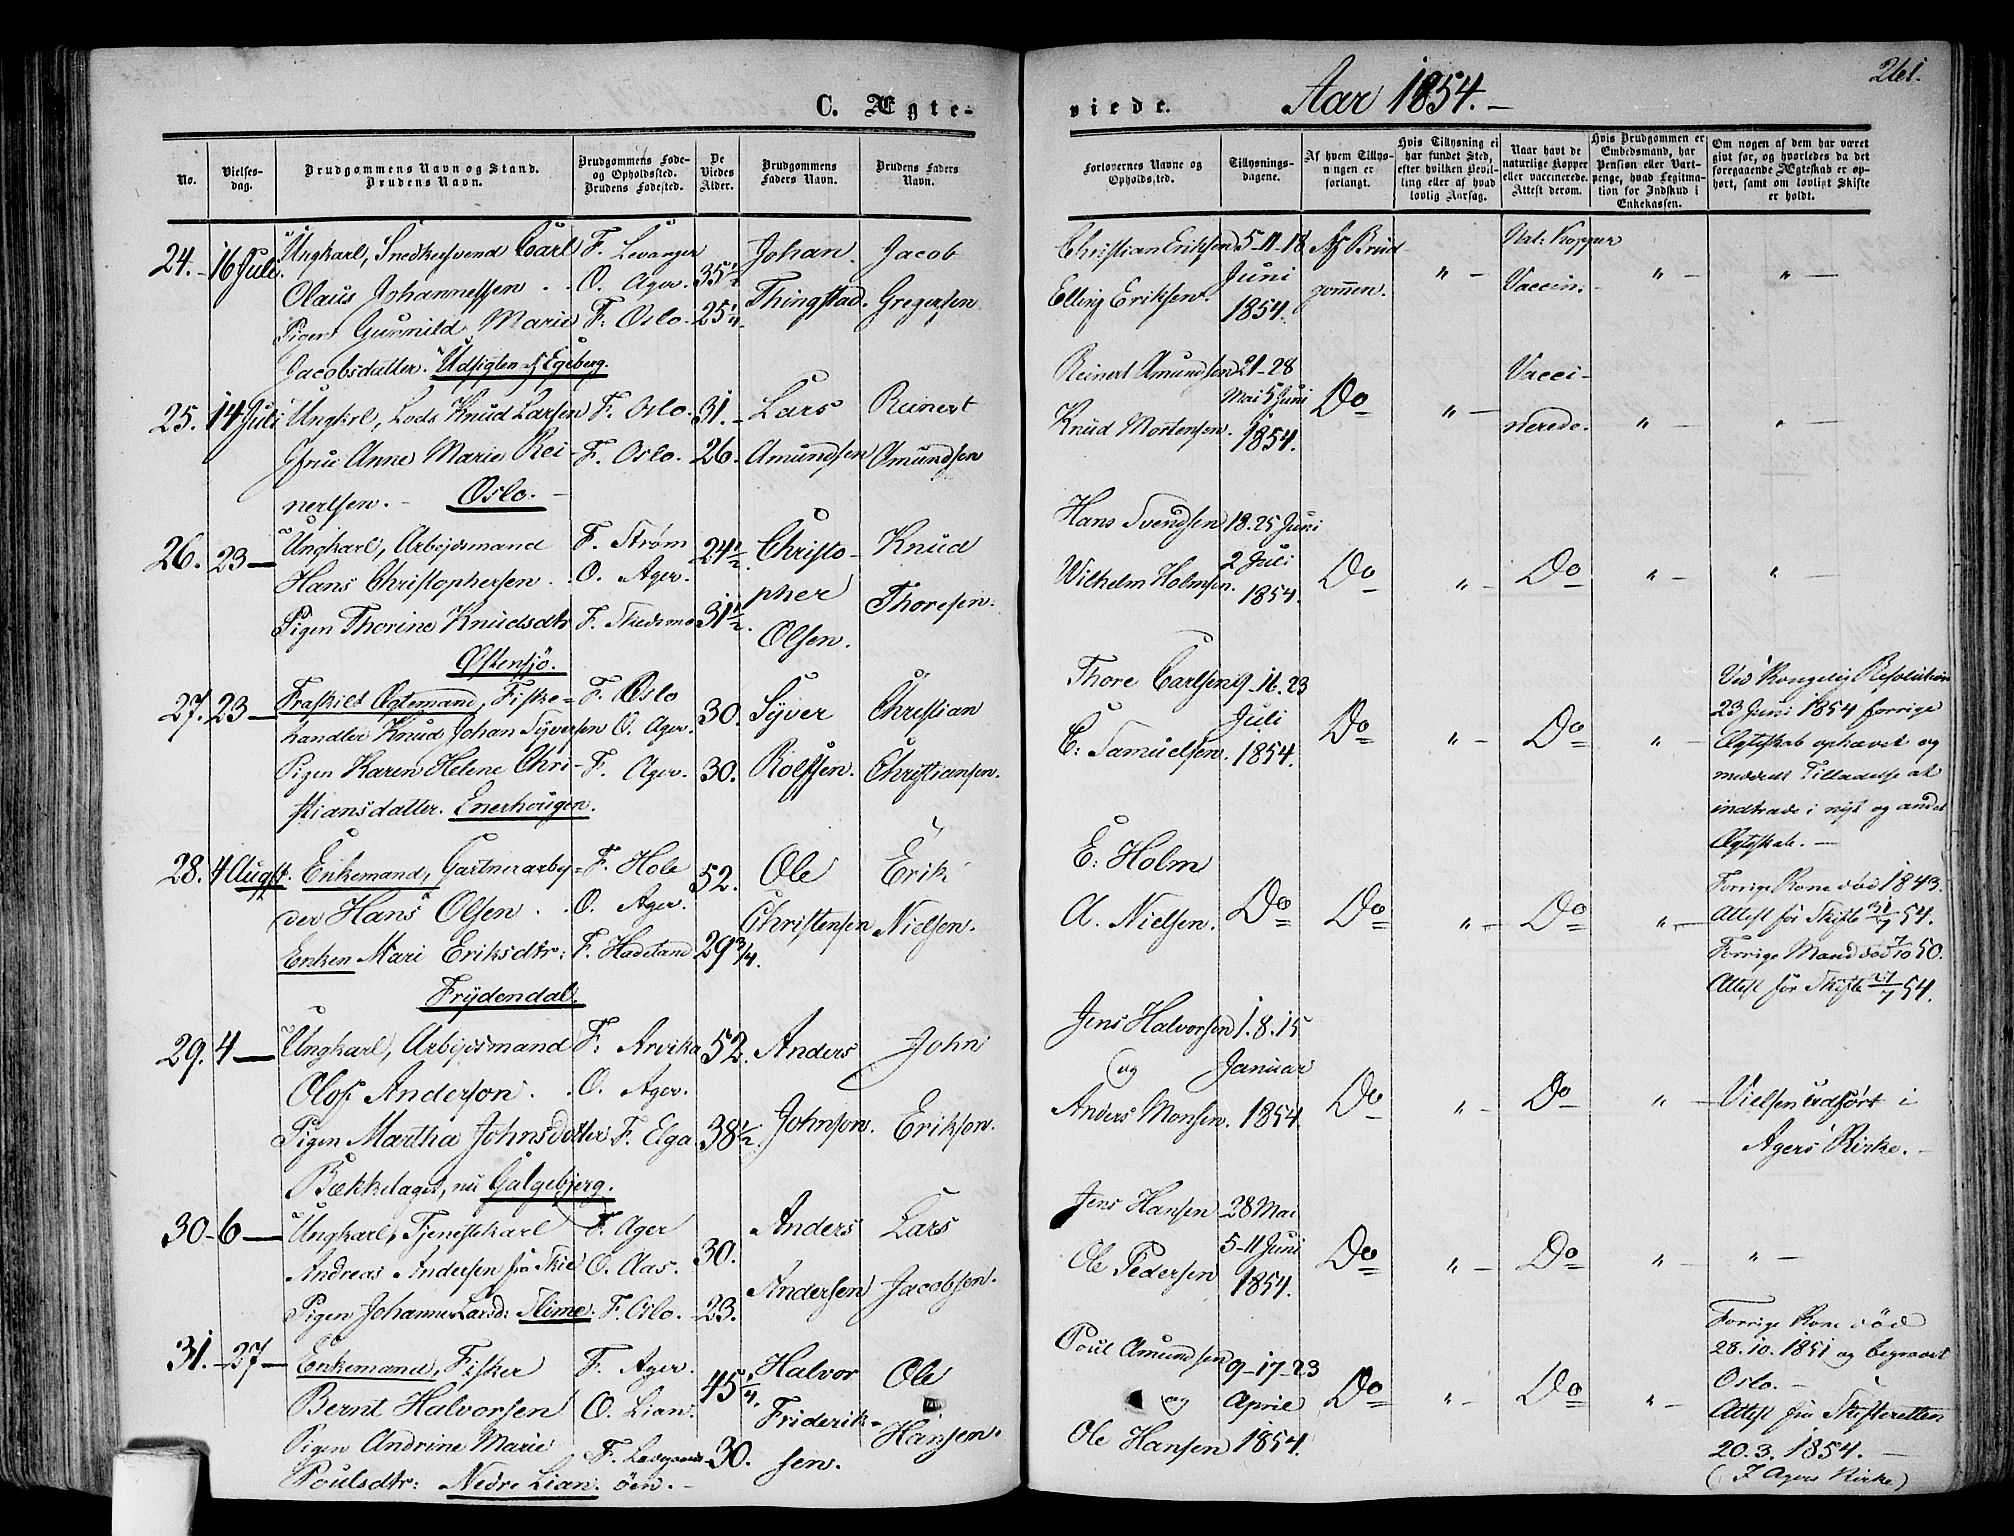 C. Ægte-
viede.
Aar 1854.-
261.
No.
Vielses-
dag.
Brudgommens Navn og Stand.
Brudens Navn.
Brudgommens Føde-
og Opholdsted.
Brudens Fødested.
De
Viedes
Alder.
Brudgommens
Faders Navn.
Brudens Faders
Navn.
Forlovernes Navne og
Opholdsted.
Tillysnings-
dagene.
Af hvem Tillys-
ningen er
forlangt.
Hvis Tillysning ei
har fundet Sted,
efter hvilken Bevil-
ling eller af hvad
lovlig Aarsag.
Naar havt de
naturlige Kopper
eller vaccinerede.
Attest derom.
Hvis Brudgommen er
Embedsmand, har
Pension eller Vart-
penge, hvad Legitima-
tion for Indskud i
Enkekassen.
Om nogen af dem har været
givt før, og hvorledes da det
foregaaende Ægteskab er op-
hørt, samt om lovligt Skifte
er holdt.
24.- 16 Juli.
Ungkarl, Snedkersvend Carl
Olaus Johannessen.
Pigen Gunnild Marie
Jacobsdatter. Udsigten af Egeberg.
F. Levanger
O. Ager.
F. Oslo.
35 1/2
25 1/4.
Johan
Thingstad.
Jacob
Gregersen
Christian Eriksen
Elling Eriksen.
5-11-18
Juni
1854.
Af Brud
gommen.
" -
Nat: Kopper
Vaccin.-
" -
" -
25. 14 Juli
Ungkrl, Lods Knud Larsen
Jfru Anne Marie Rei-
nertsen. - Oslo. -
F. Oslo.
F. Oslo.
31.-
26.
Lars
Amundsen
Reinert
Amundsen
Reinert Amundsen
Knud Mortensen.
21-28
Mai 5 Juni
1854.
Do
" -
Vacci-
nerede.
" -
" -
26. 23 -
Ungkarl, Arbejdsmand
Hans Christophersen.
Pigen Thorine Knudsdtr
Østensjö.
F. Strøm
O. Ager.
F. Skedsmo
24 1/2
31 1/2.
Christo-
pher
Olsen.
Knud
Thoresen.
Hans Svendsen
Wilhelm Holmsen.
18. 25 Juni
2 Juli
1854.
Do
" -
Do
" -
" -
27. 23 -
Fraskilt Ægtemand, Fiske-
handler Knud Johan Syversen
Pigen Karen Helene Chri-
stiansdatter. Enerhougen.
F. Oslo
O. Ager.
F. Ager.
30.
30.
Syver
Rolfsen.
Christian
Christiansen.
Thore Carlsen
C: Samuelsen.
9-16-23
Juli
1854.
Do
" -
Do
" -
Ved Kongelig Resolution
23 Juni 1854 forrige
Ægteskab ophævet og
meddelt Tilladelse at
indtræde i nyt og andet
Ægteskab. -
28. 4 Augst.
Enkemand, Gartnerarbej-
der Hans Olsen.
Enken Mari Eriksdtr:
Frydendal.
F. Hole
O. Ager.
F. Hadeland
52.
29 3/4.
Ole
Christensen
Erik
Nielsen.
E: Holm
A. Nielsen.
Do
Do
" -
Do
" -
Forrige Kone død 1843.
Attest for Skifte 31/7 54.
Forrige Mand død 7/10 50.
Attest for Skifte 27/7 54.
29. 4 -
Ungkarl, Arbejdsmand
Olof Anderson.
Pigen Martha Johnsdotter
Bækkelaget, nu Galgebjerg.
F. Arvika
O. Ager.
F. Elga
52.
38 1/2.
Anders
Johnson.
John
Erikson.
Jens Halvorsen
og
Anders Monsen.
1. 8. 15
Januar
1854.
Do
" -
Do
" -
Vielsen udført i
Agers Kirke. -
30- 6 -
Ungkarl, Tjenestekarl
Andreas Andersen fra Skie
Pigen Johanne Larsd: Slime.
F. Ager
O. Aas.
F. Oslo.
30.
23.
Anders
Andersen
Lars
Jacobsen.
Jens Hansen
Ole Pedersen
28 Mai
5-11 Juni
1854.
Do
" -
Do
" -
" -
31. -27-
Enkemand, Fisker
Bernt Halvorsen
Pigen Andrine Marie
Poulsdtr: Nedre Lian.
F. Ager.
O. Lian.
øen. -
45 1/4.
30.
Halvor
Friderik-
sen.
Ole
Hansen.
Poul Amundsen
og
Ole Hansen
9-17-23
April
1854.
Do
" -
Do
" -
Forrige Kone död
28.10.1851 og begravet
Oslo. -
Attest fra Skifteretten
20.3.1854. -
(I Agers Kirke)